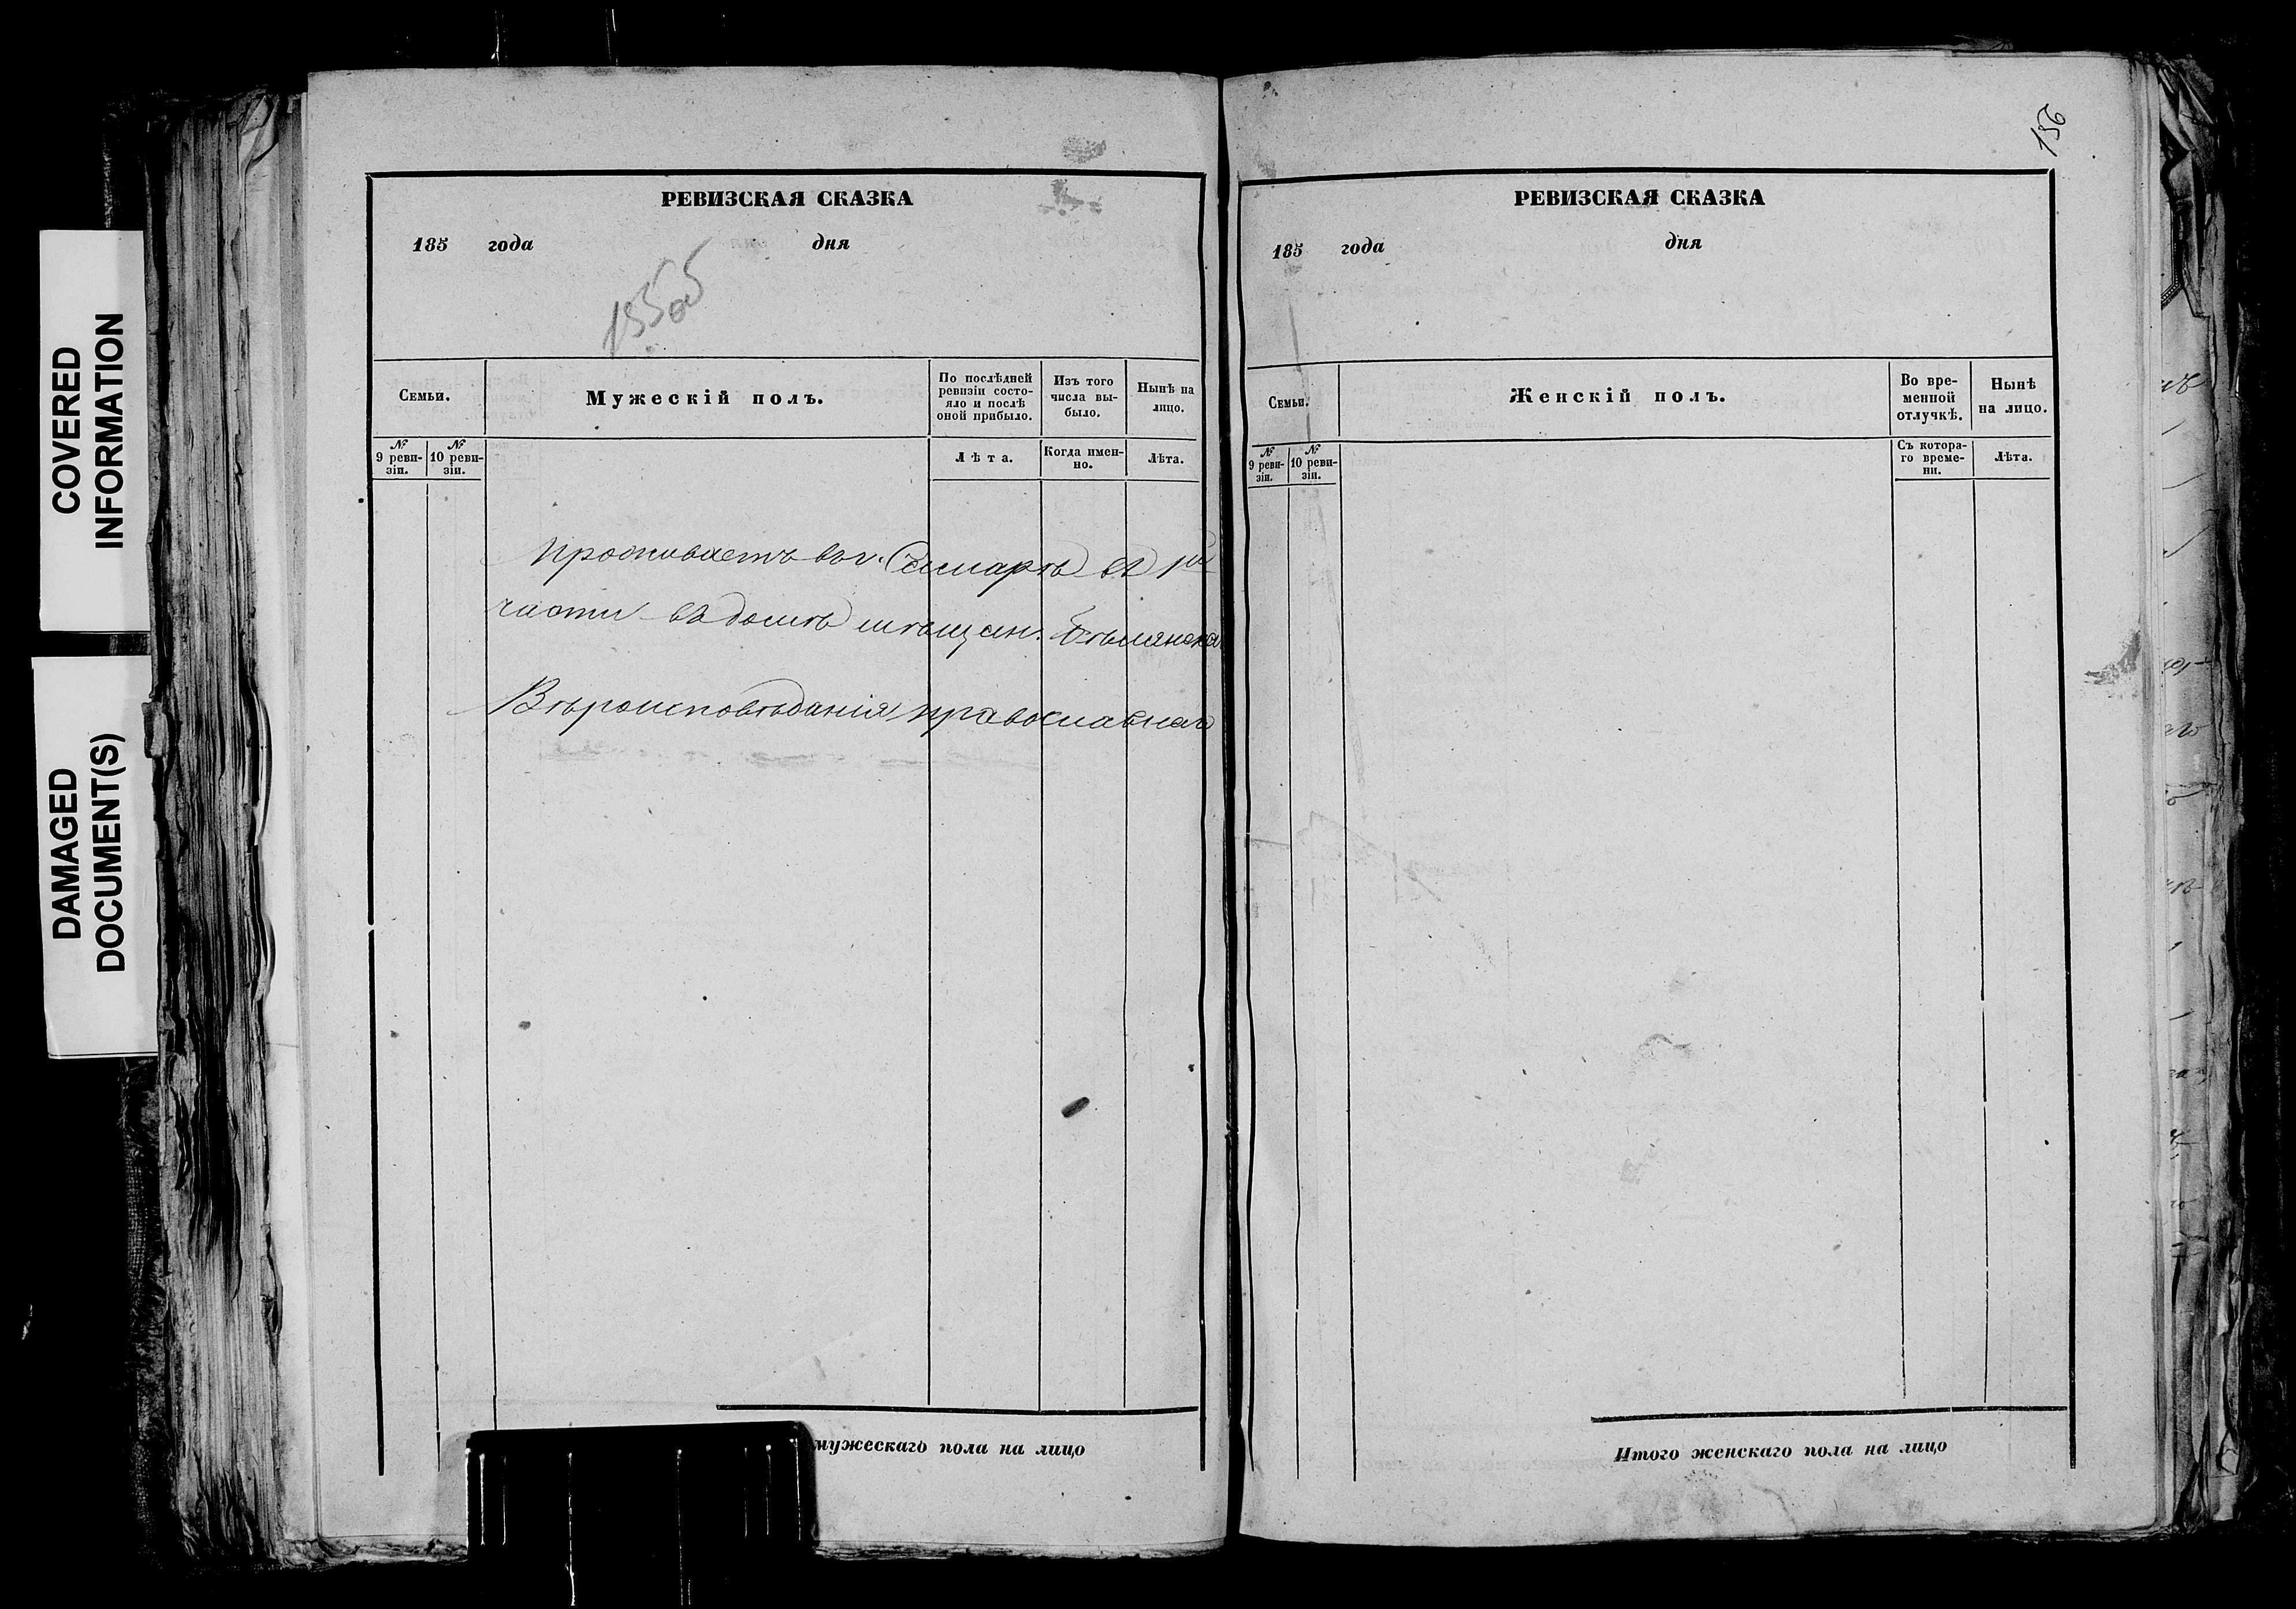 COVERED
INFORMATION
DAMAGED
DOCUMENT(S)
РЕВИЗСКАЯ СКАЗКА
185 года дня
155об
Семьи.
Мужескій полъ.
По послѣдней ревизіи состо-
яло и послѣ
оной прибыло.
Изъ того
числа вы-
было.
Нынѣ на
лицо.
№
9 реви-
зіи.
№
10 реви-
зіи.
Лѣта.
Когда имен-
но.
Лѣта.
Проживаетъ въ г. Самарѣ въ 1й
части въ домѣ мѣщан.
Вѣроисповѣданія православнаго
мужескаго пола на лицо
156
РЕВИЗСКАЯ СКАЗКА
185 года дня
Семьи.
Женскій полъ.
Во вре-
менной
отлучкѣ.
Нынѣ
на лицо.
№
9 реви-
зіи.
№
10 реви-
зіи.
Съ котора-
го време-
ни.
Лѣта.
Итого женскаго пола на лицо